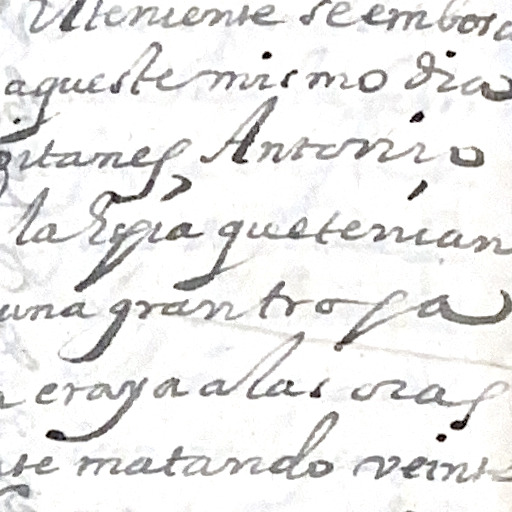 Uteniente se embosc
aqueste mismo dia
pitanes Antonio
la Espia que tenian
una gran tropa
era ya a las oras
te matando veinte